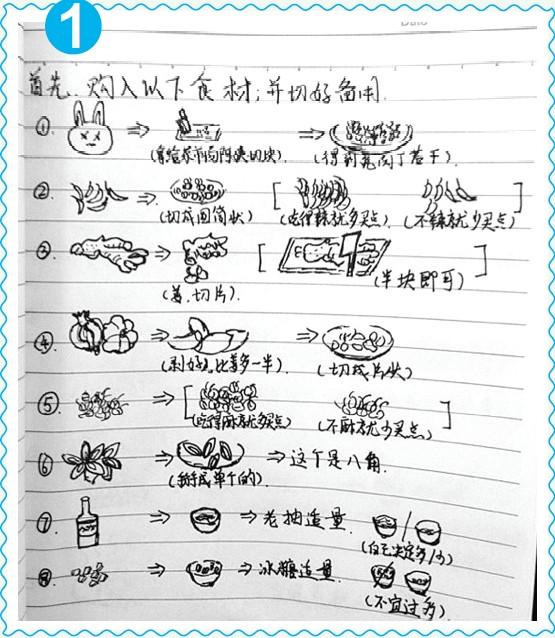 1
首先，购入以下食材，并切好备用
① (拿给菜市场阿姨切块) (得到兔肉丁若干).
② (切成圆筒状) [ (吃得辣就多买点) (不辣就少买点) ]
③ (姜.切片). [ (半块即可) ]
④ (剥好,比姜多一半) (切成片状)
⑤ [ (吃得麻就多买点) (不麻就少买点) ]
⑥ (掰成单个的) 这个是八角.
⑦ 老抽适量 / (自己决定多/少)
⑧ 冰糖适量 (不宜过多)